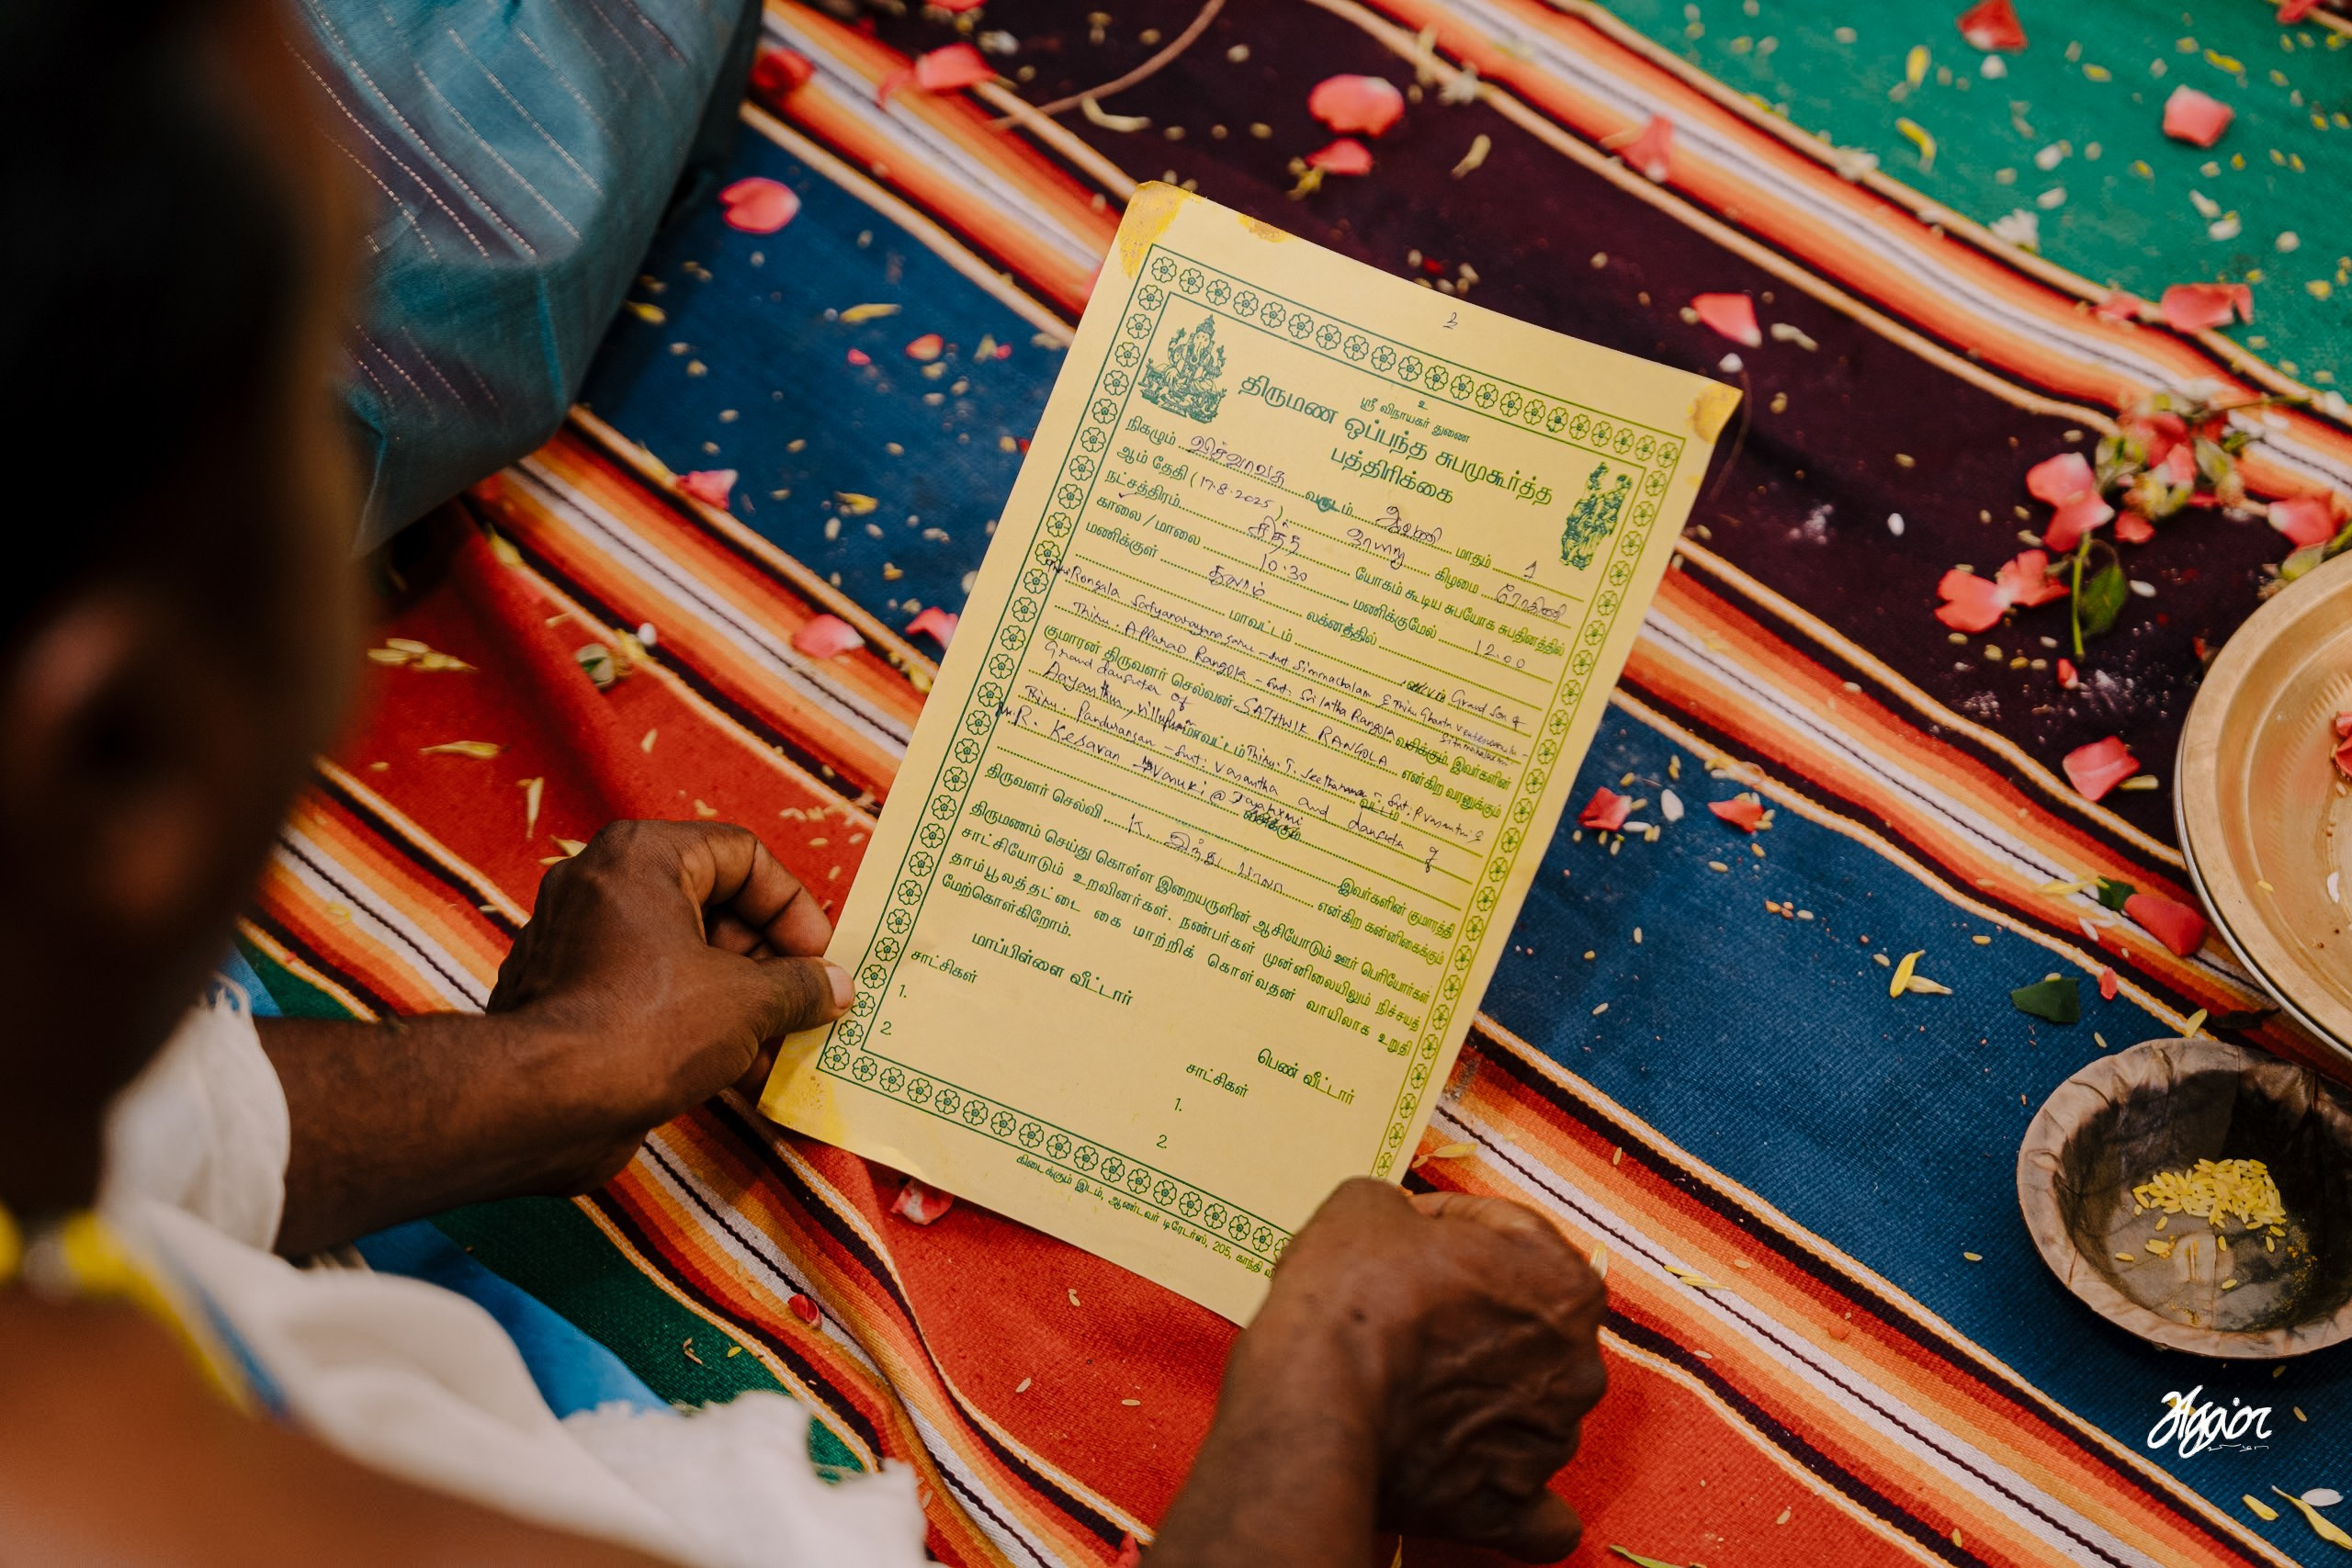 உ
உ
ஸ்ரீ விநாயகர் துணை
திருமண ஒப்பந்த சுபமுகூர்த்த
பத்திரிக்கை
நிகழும் வருடம் ஆவணி மாதம் 1
ஆம் தேதி (17.8.2025) ஞாயிறு கிழமை ரோகிணி
நட்சத்திரம் சித்த யோகம் கூடிய சுபயோக சுபதினத்தில்
காலை / மாலை 10.30 மணிக்குமேல் 12.00
மணிக்குள் துலாம் லக்னத்தில்
மாவட்டம் வட்டம் Grand Son of
Rongala Satyanarayana Smt Simmachalam & Thiru
Thiru. Apparao Rangola - Smt. Sri latha Rangola வசிக்கும் இவர்களின்
குமாரன் திருவளர் செல்வன் SATHWIK RANGOLA என்கிற வரனுக்கும்
Grand daughter of
மாவட்டம் Thiru. T. வட்டம்
Thiru. Pandurangan - Smt. Vasantha and daughter of
Mr. R. Kesavan - @ வசிக்கும்
இவர்களின் குமாரத்தி
திருவளர் செல்வி K. இந்து பாலா என்கிற கன்னிகைக்கும்
திருமணம் செய்து கொள்ள இறையருளின் ஆசியோடும் ஊர் பெரியோர்கள்
சாட்சியோடும் உறவினர்கள். நண்பர்கள் முன்னிலையிலும் நிச்சயத்
தாம்பூலத்தட்டை கை மாற்றிக் கொள்வதன் வாயிலாக உறுதி
மேற்கொள்கிறோம்.
மாப்பிள்ளை வீட்டார்
சாட்சிகள்
1.
2
பெண் வீட்டார்
சாட்சிகள்
1.
2
கிடைக்கும் இடம், ஆண்டவர் டிரேடர்ஸ், 205, காந்தி